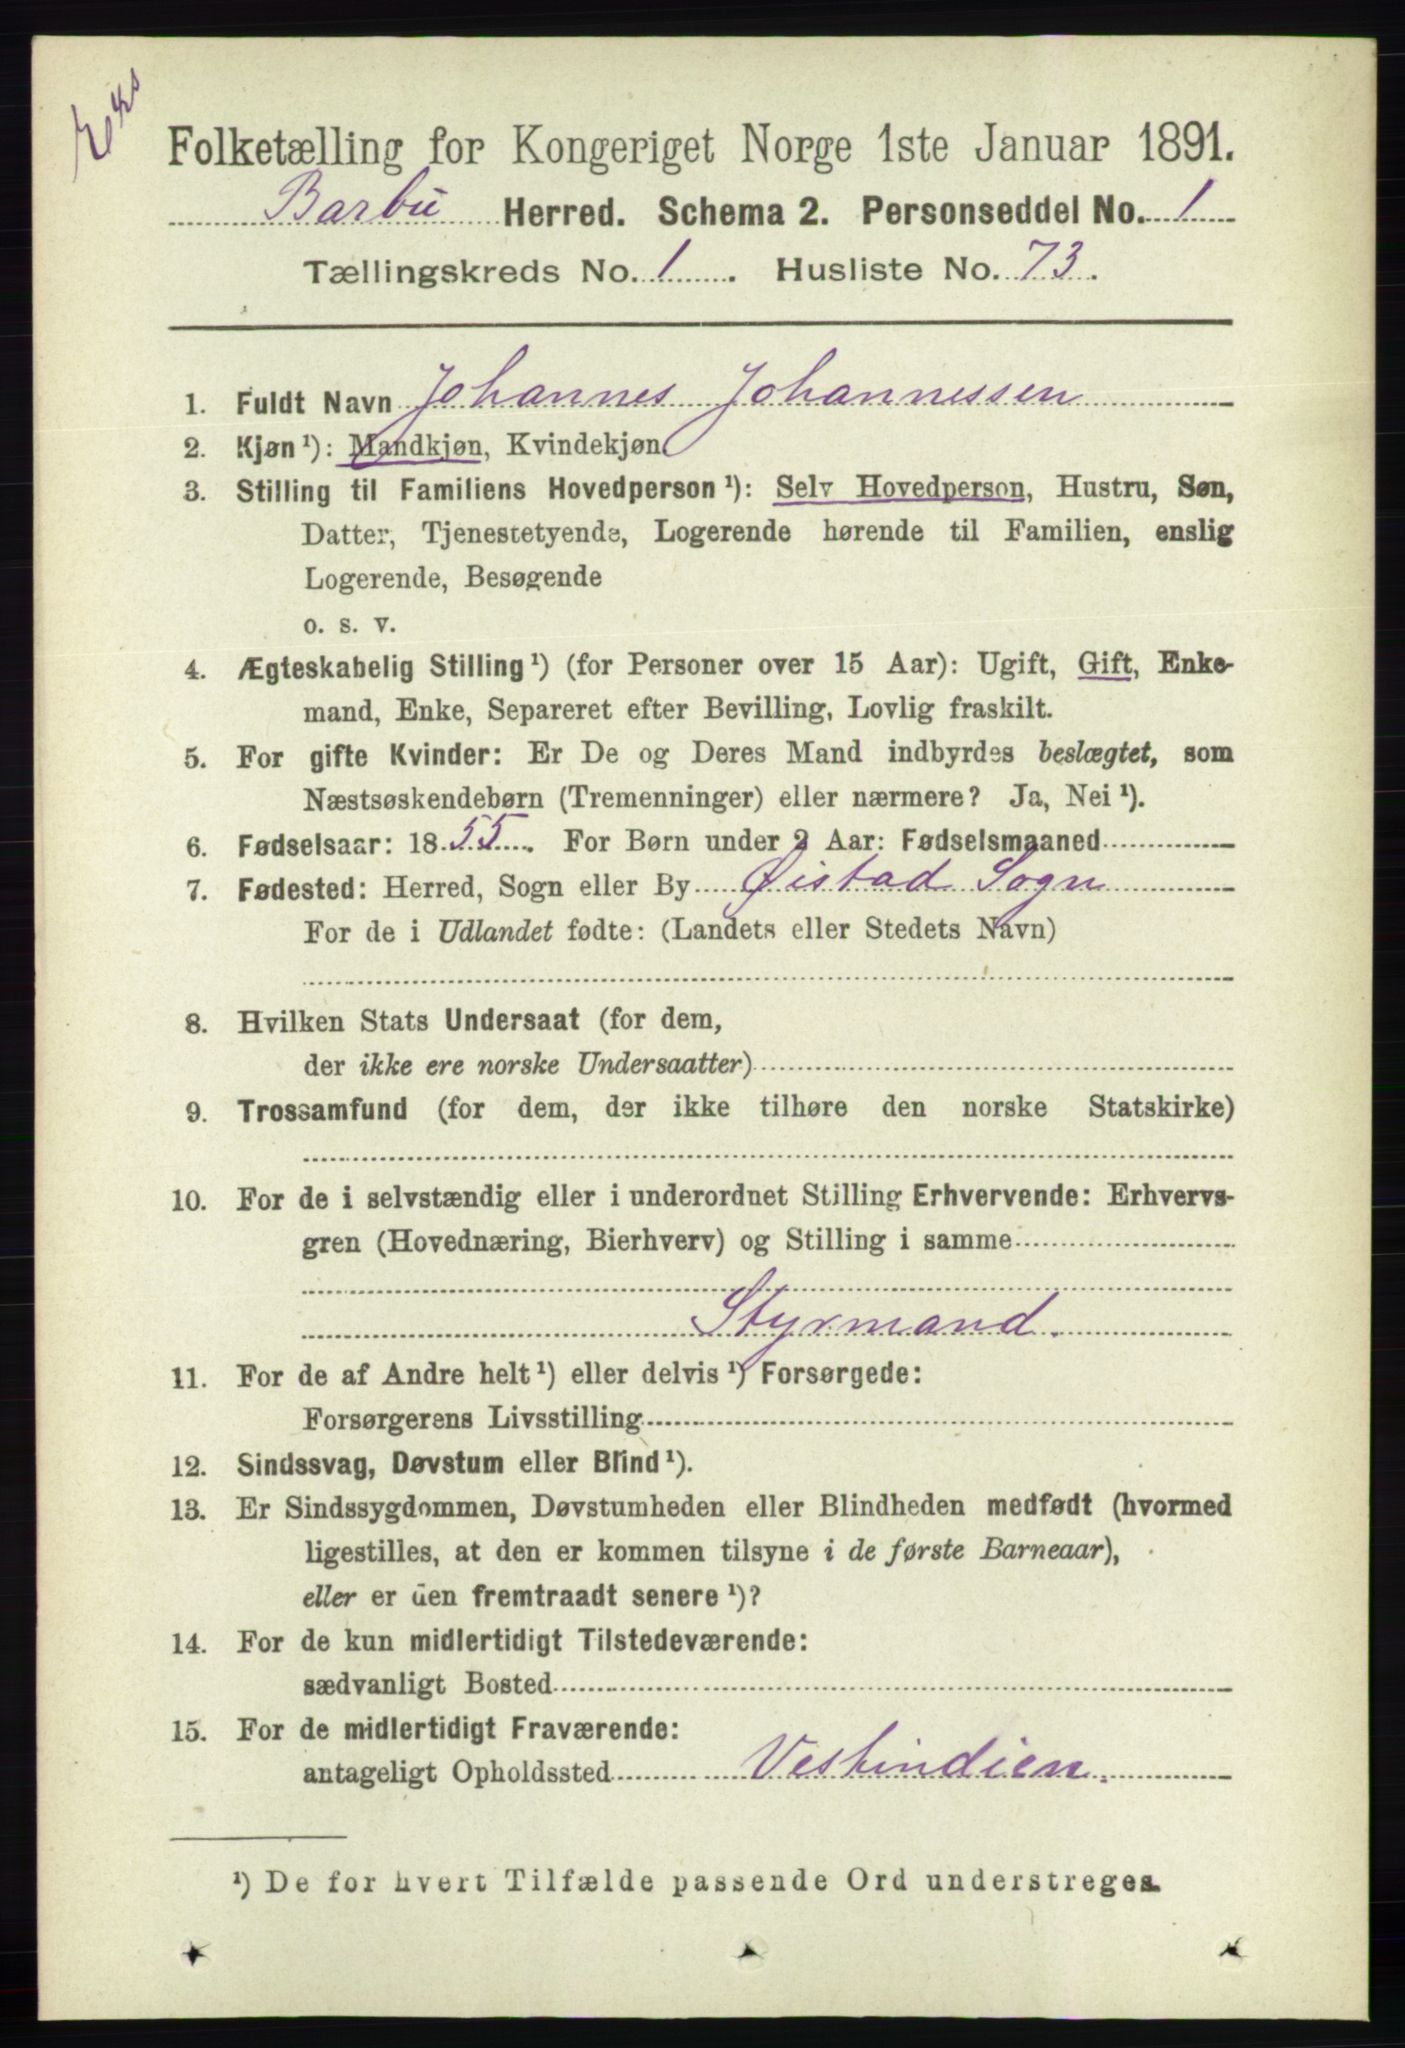 Folketælling for Kongeriget Norge 1ste Januar 1891.
Barbu Herred. Schema 2. Personseddel No. 1
Tællingskreds No. 1. Husliste No. 73.
1. Fuldt Navn Johannes Johannessen
2. Kjøn ¹): Mandkjøn, Kvindekjøn
3. Stilling til Familiens Hovedperson ¹): Selv Hovedperson, Hustru, Søn,
Datter, Tjenestetyende, Logerende hørende til Familien, enslig
Logerende, Besøgende
o. s. v.
4. Ægteskabelig Stilling ¹) (for Personer over 15 Aar): Ugift, Gift, Enke-
mand, Enke, Separeret efter Bevilling, Lovlig fraskilt.
5. For gifte Kvinder: Er De og Deres Mand indbyrdes beslægtet, som
Næstsøskendebørn (Tremenninger) eller nærmere? Ja, Nei ¹).
6. Fødselsaar: 1855. For Børn under 2 Aar: Fødselsmaaned
7. Fødested: Herred, Sogn eller By Øistad Sogn
For de i Udlandet fødte: (Landets eller Stedets Navn)
8. Hvilken Stats Undersaat (for dem,
der ikke ere norske Undersaatter)
9. Trossamfund (for dem, der ikke tilhøre den norske Statskirke)
10. For de i selvstændig eller i underordnet Stilling Erhvervende: Erhvervs-
gren (Hovednæring, Bierhverv) og Stilling i samme
Styrmand.
11. For de af Andre helt ¹) eller delvis ¹) Forsørgede:
Forsørgerens Livsstilling
12. Sindssvag, Døvstum eller Blind ¹).
13. Er Sindssygdommen, Døvstumheden eller Blindheden medfødt (hvormed
ligestilles, at den er kommen tilsyne i de første Barneaar),
eller er den fremtraadt senere ¹)?
14. For de kun midlertidigt Tilstedeværende:
sædvanligt Bosted
15. For de midlertidigt Fraværende:
antageligt Opholdssted Vestindien.
¹) De for hvert Tilfælde passende Ord understreges.